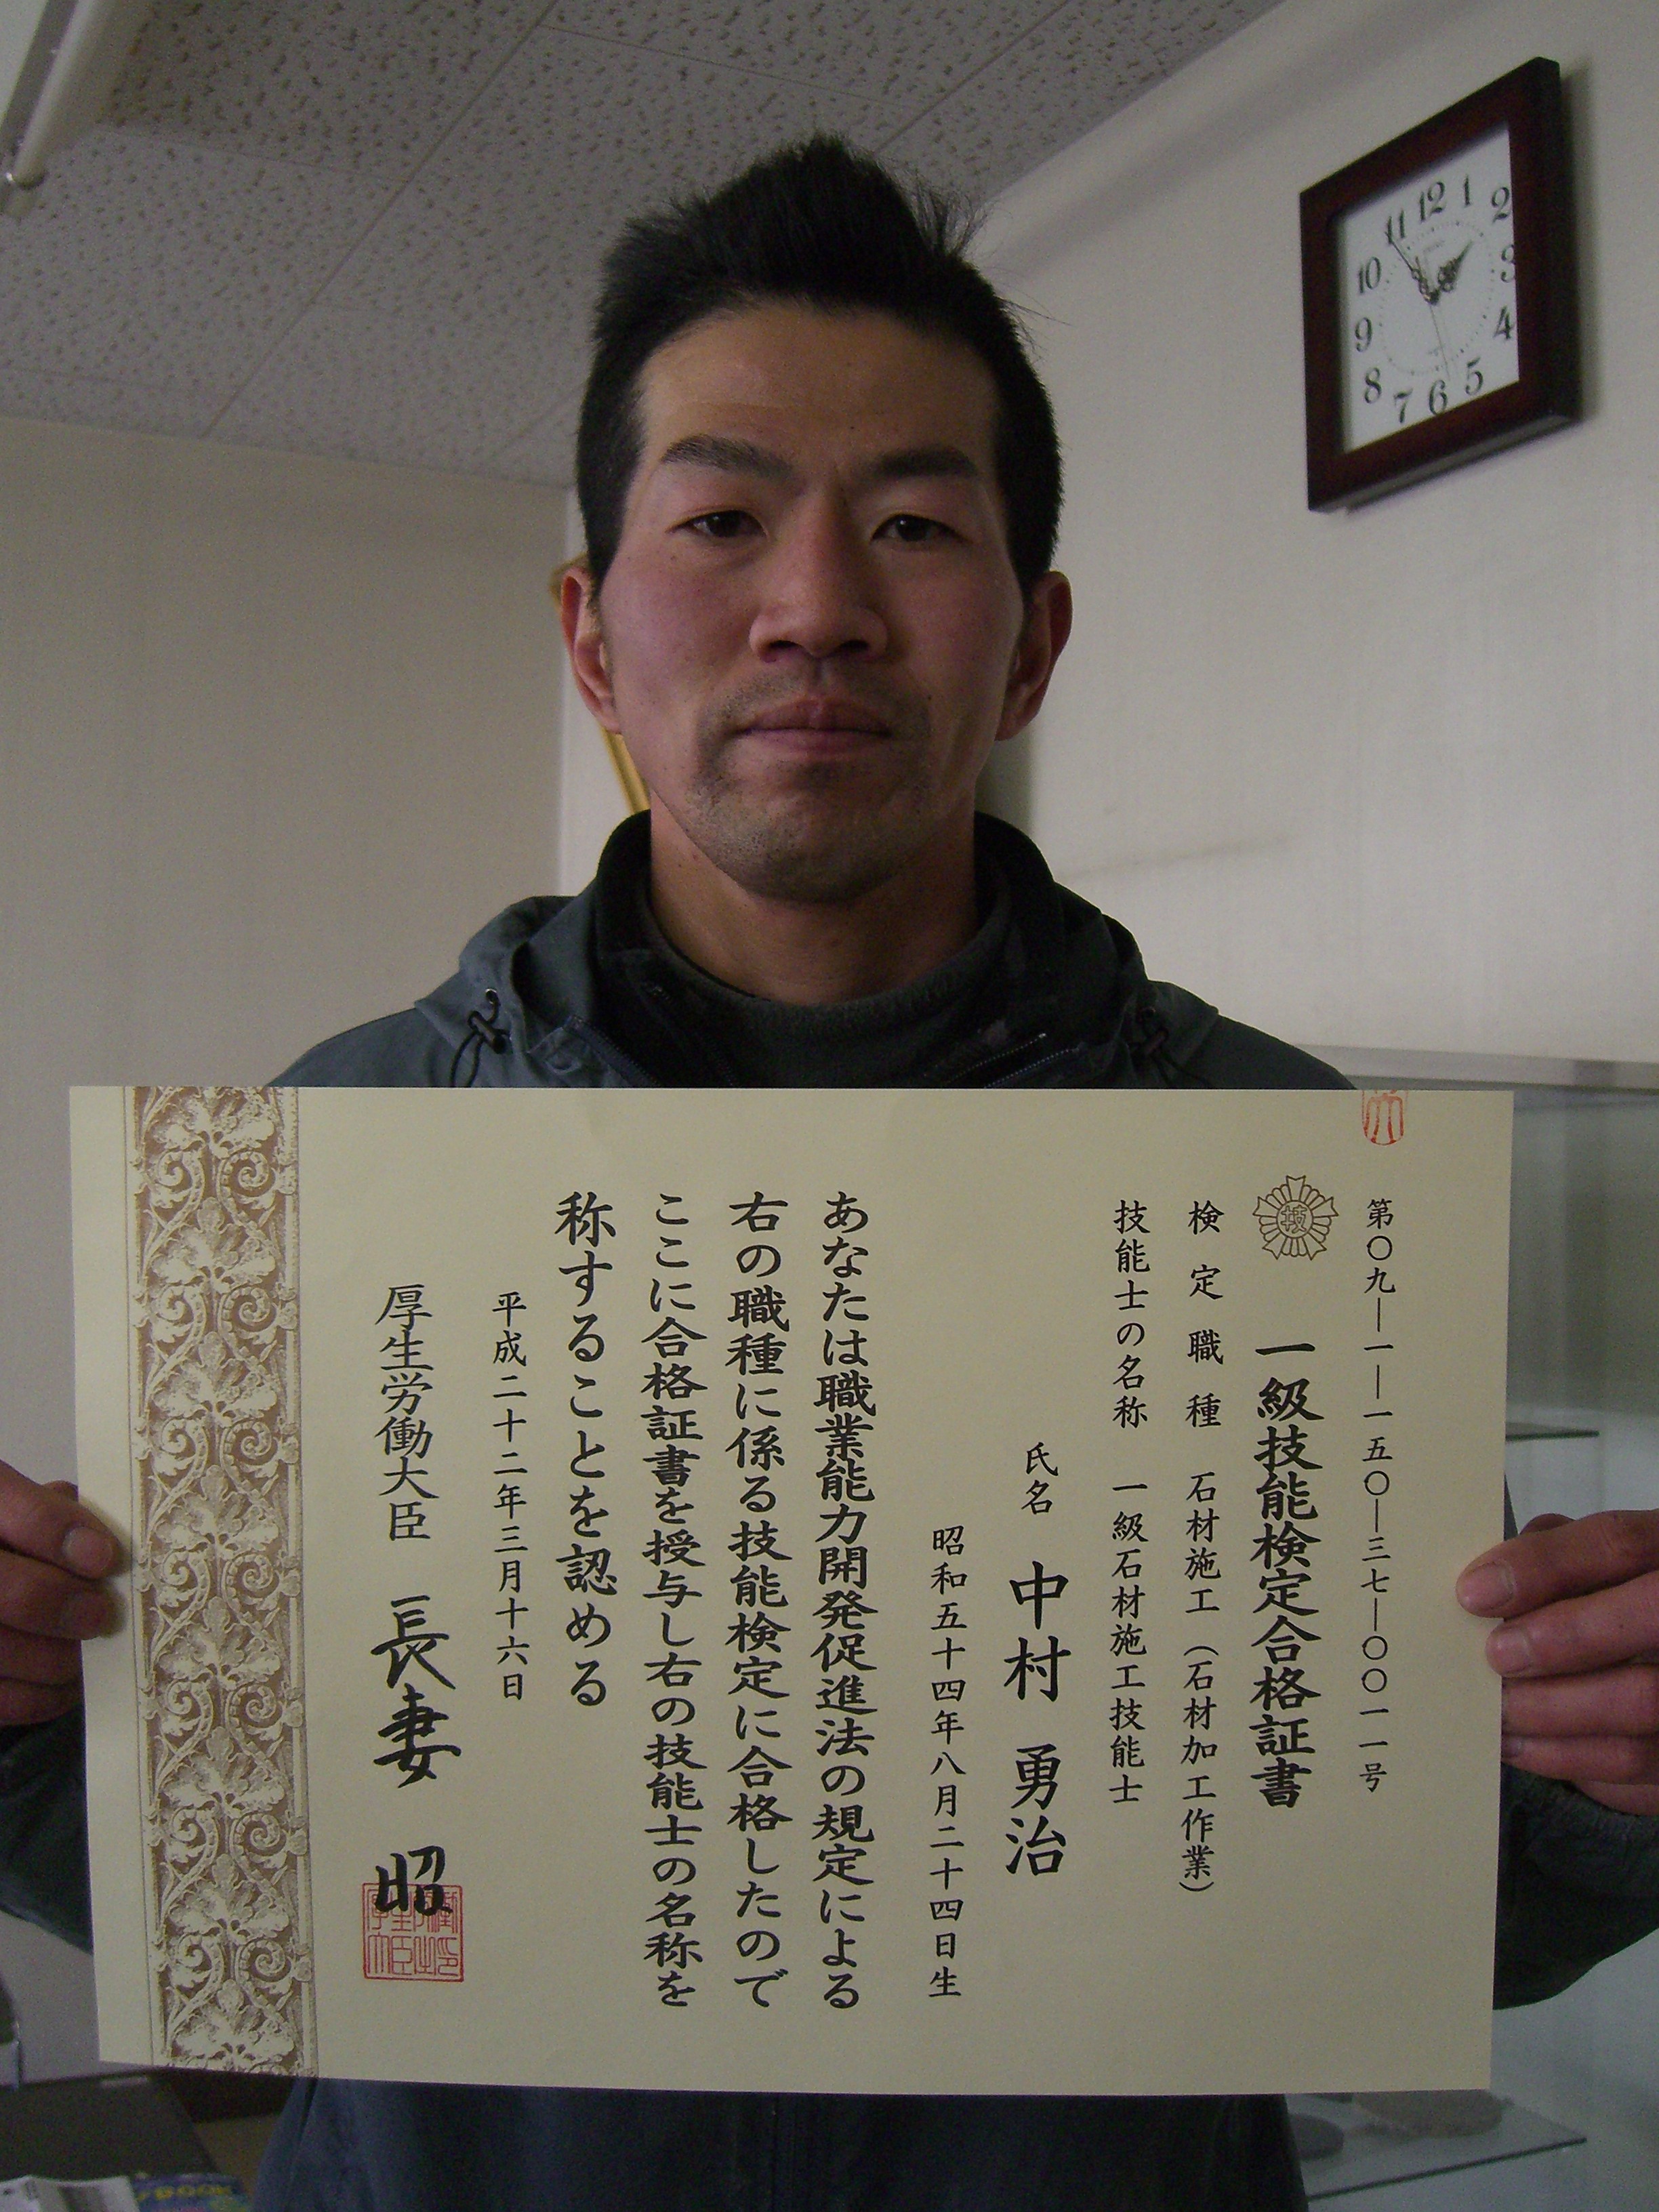 第〇九―一―一五〇―三七―〇〇一一号
技
一級技能検定合格証書
検定職種 石材施工（石材加工作業）
技能士の名称 一級石材施工技能士
氏名 中村 勇治
昭和五十四年八月二十四日生
あなたは職業能力開発促進法の規定による
右の職種に係る技能検定に合格したので
ここに合格証書を授与し右の技能士の名称を
称することを認める
平成二十二年三月十六日
厚生労働大臣 長妻 昭
11 12 1
10 2
9 3
8 4
7 6 5